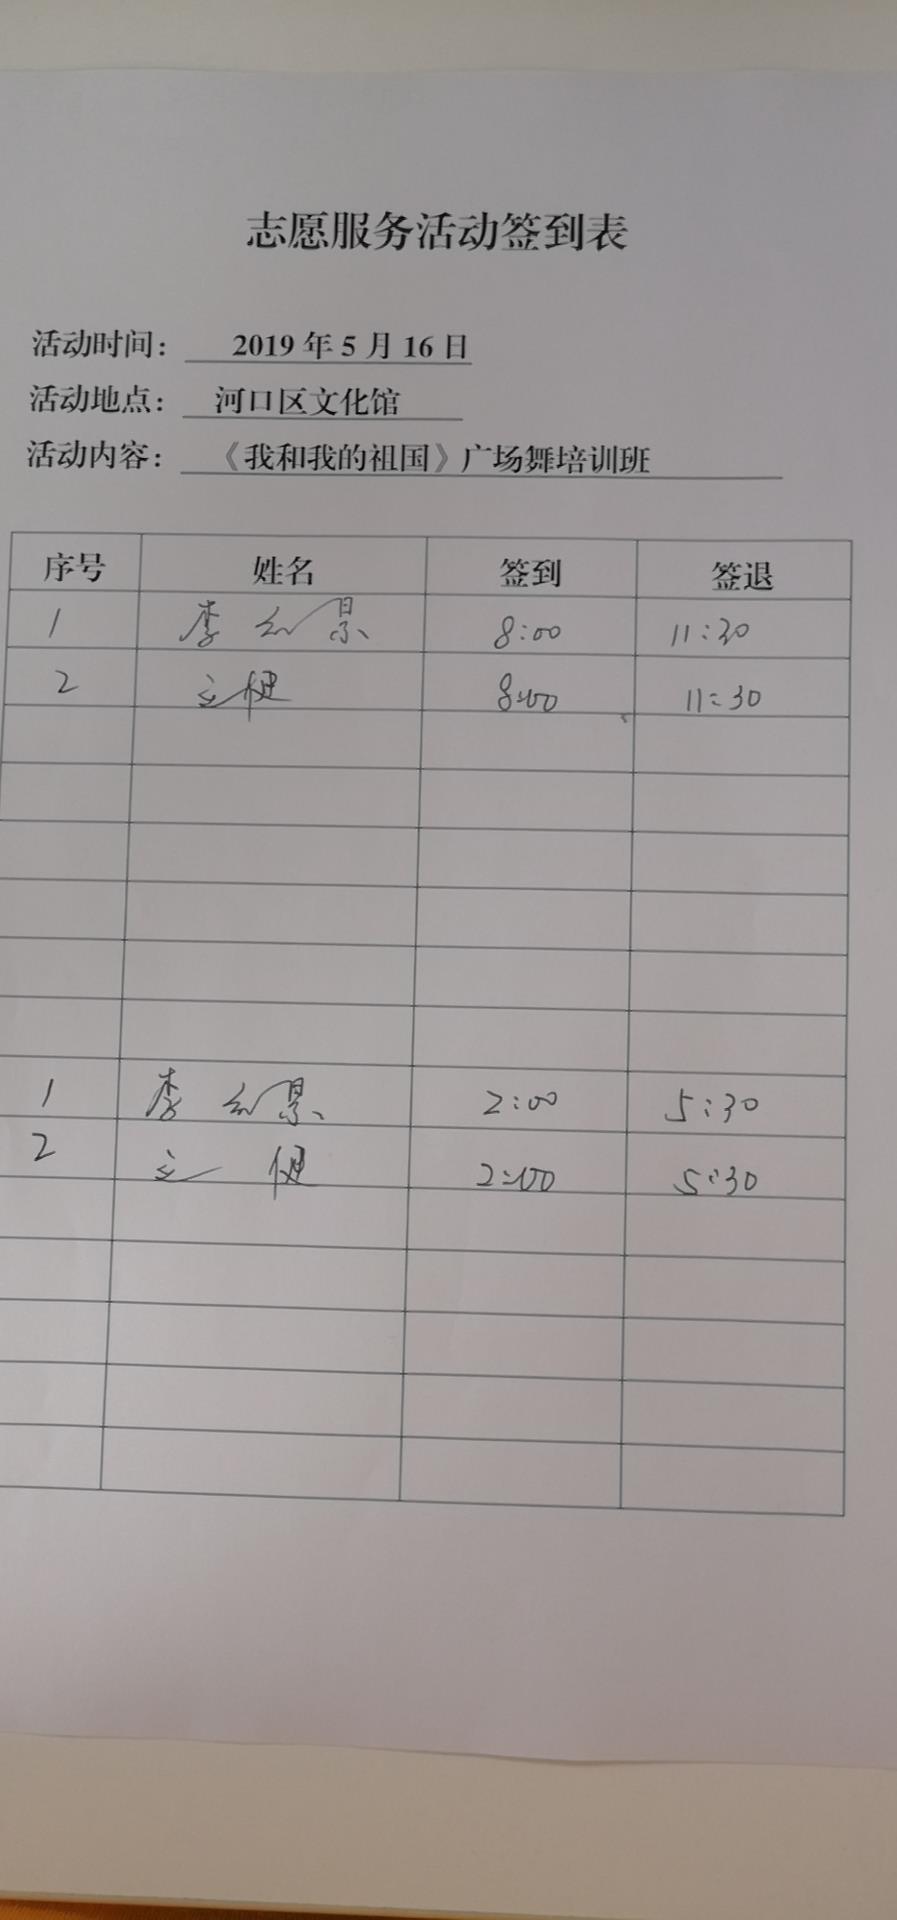 志愿服务活动签到表
活动时间： 2019 年 5 月 16 日
活动地点： 河口区文化馆
活动内容： 《我和我的祖国》广场舞培训班
序号 姓名 签到 签退
1 李红景 8:00 11:30
2 健 8:00 11:30
1 李红景 2:00 5:30
2 健 2:00 5:30